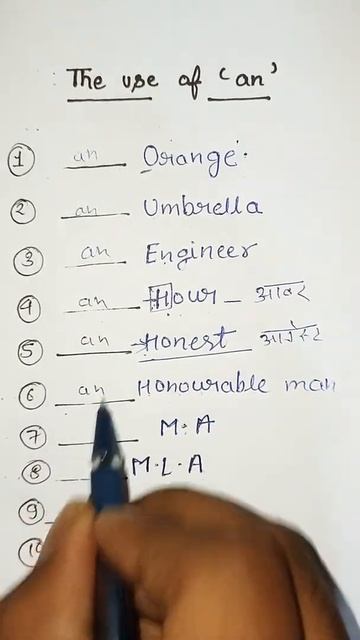 The use of 'an'
1 an Orange.
2 an Umbrella
3 an Engineer
4 an Hour _ आवर
5 an Honest
6 an Honourable man
7 M.A
8 M.L.A
9